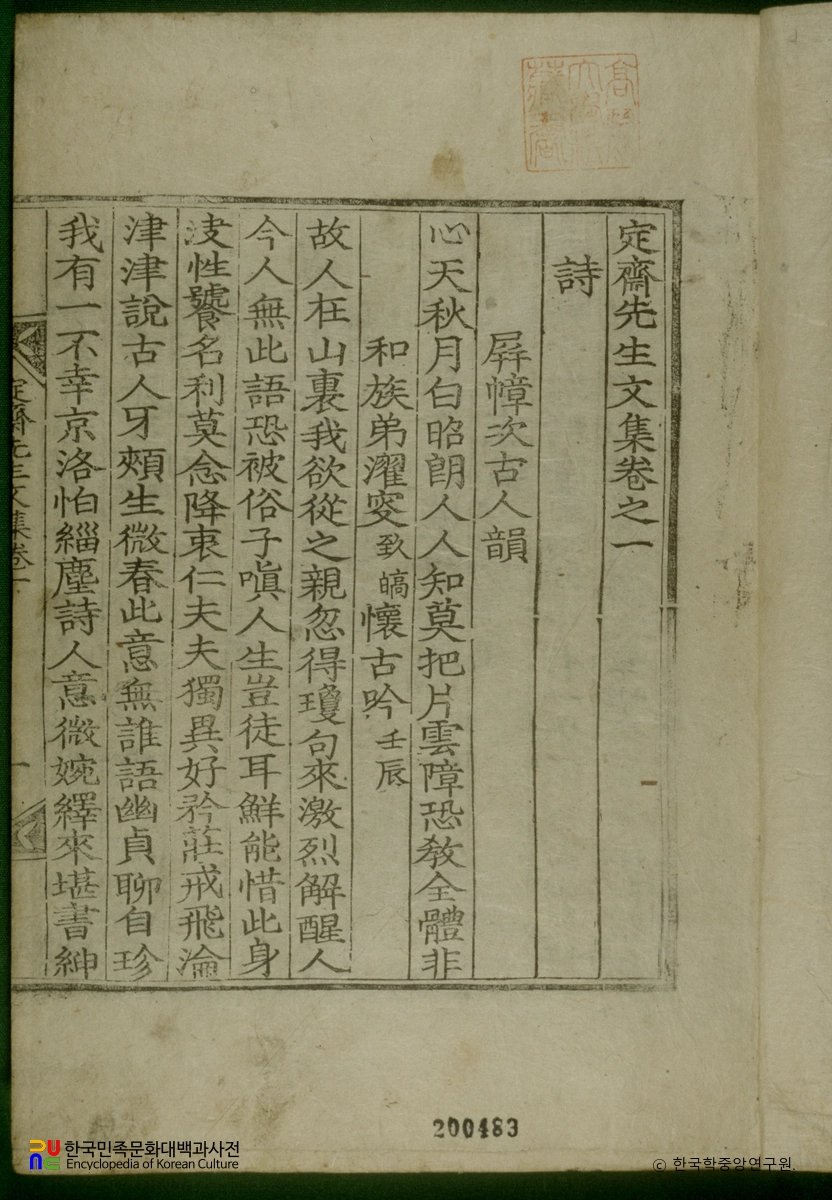 定齋先生文集卷之一
詩
屛幛次古人韻
心天秋月白昭朗人人知莫把片雲障恐敎全體非
和族弟濯叟致皜懷古吟壬辰
故人在山裏我欲從之親忽得瓊句來激烈解醒人
今人無此語恐被俗子嗔人生豈徒耳鮮能惜此身
淩性饕名利莫念降衷仁夫夫獨異好矜莊戒飛淪
津津說古人牙頰生微春此意無誰語幽貞聊自珍
我有一不幸京洛怕緇塵詩人意微婉繹來堪書紳
定齋先生文集卷一
一
200483
한국민족문화대백과사전
Encyclopedia of Korean Culture
ⓒ 한국학중앙연구원